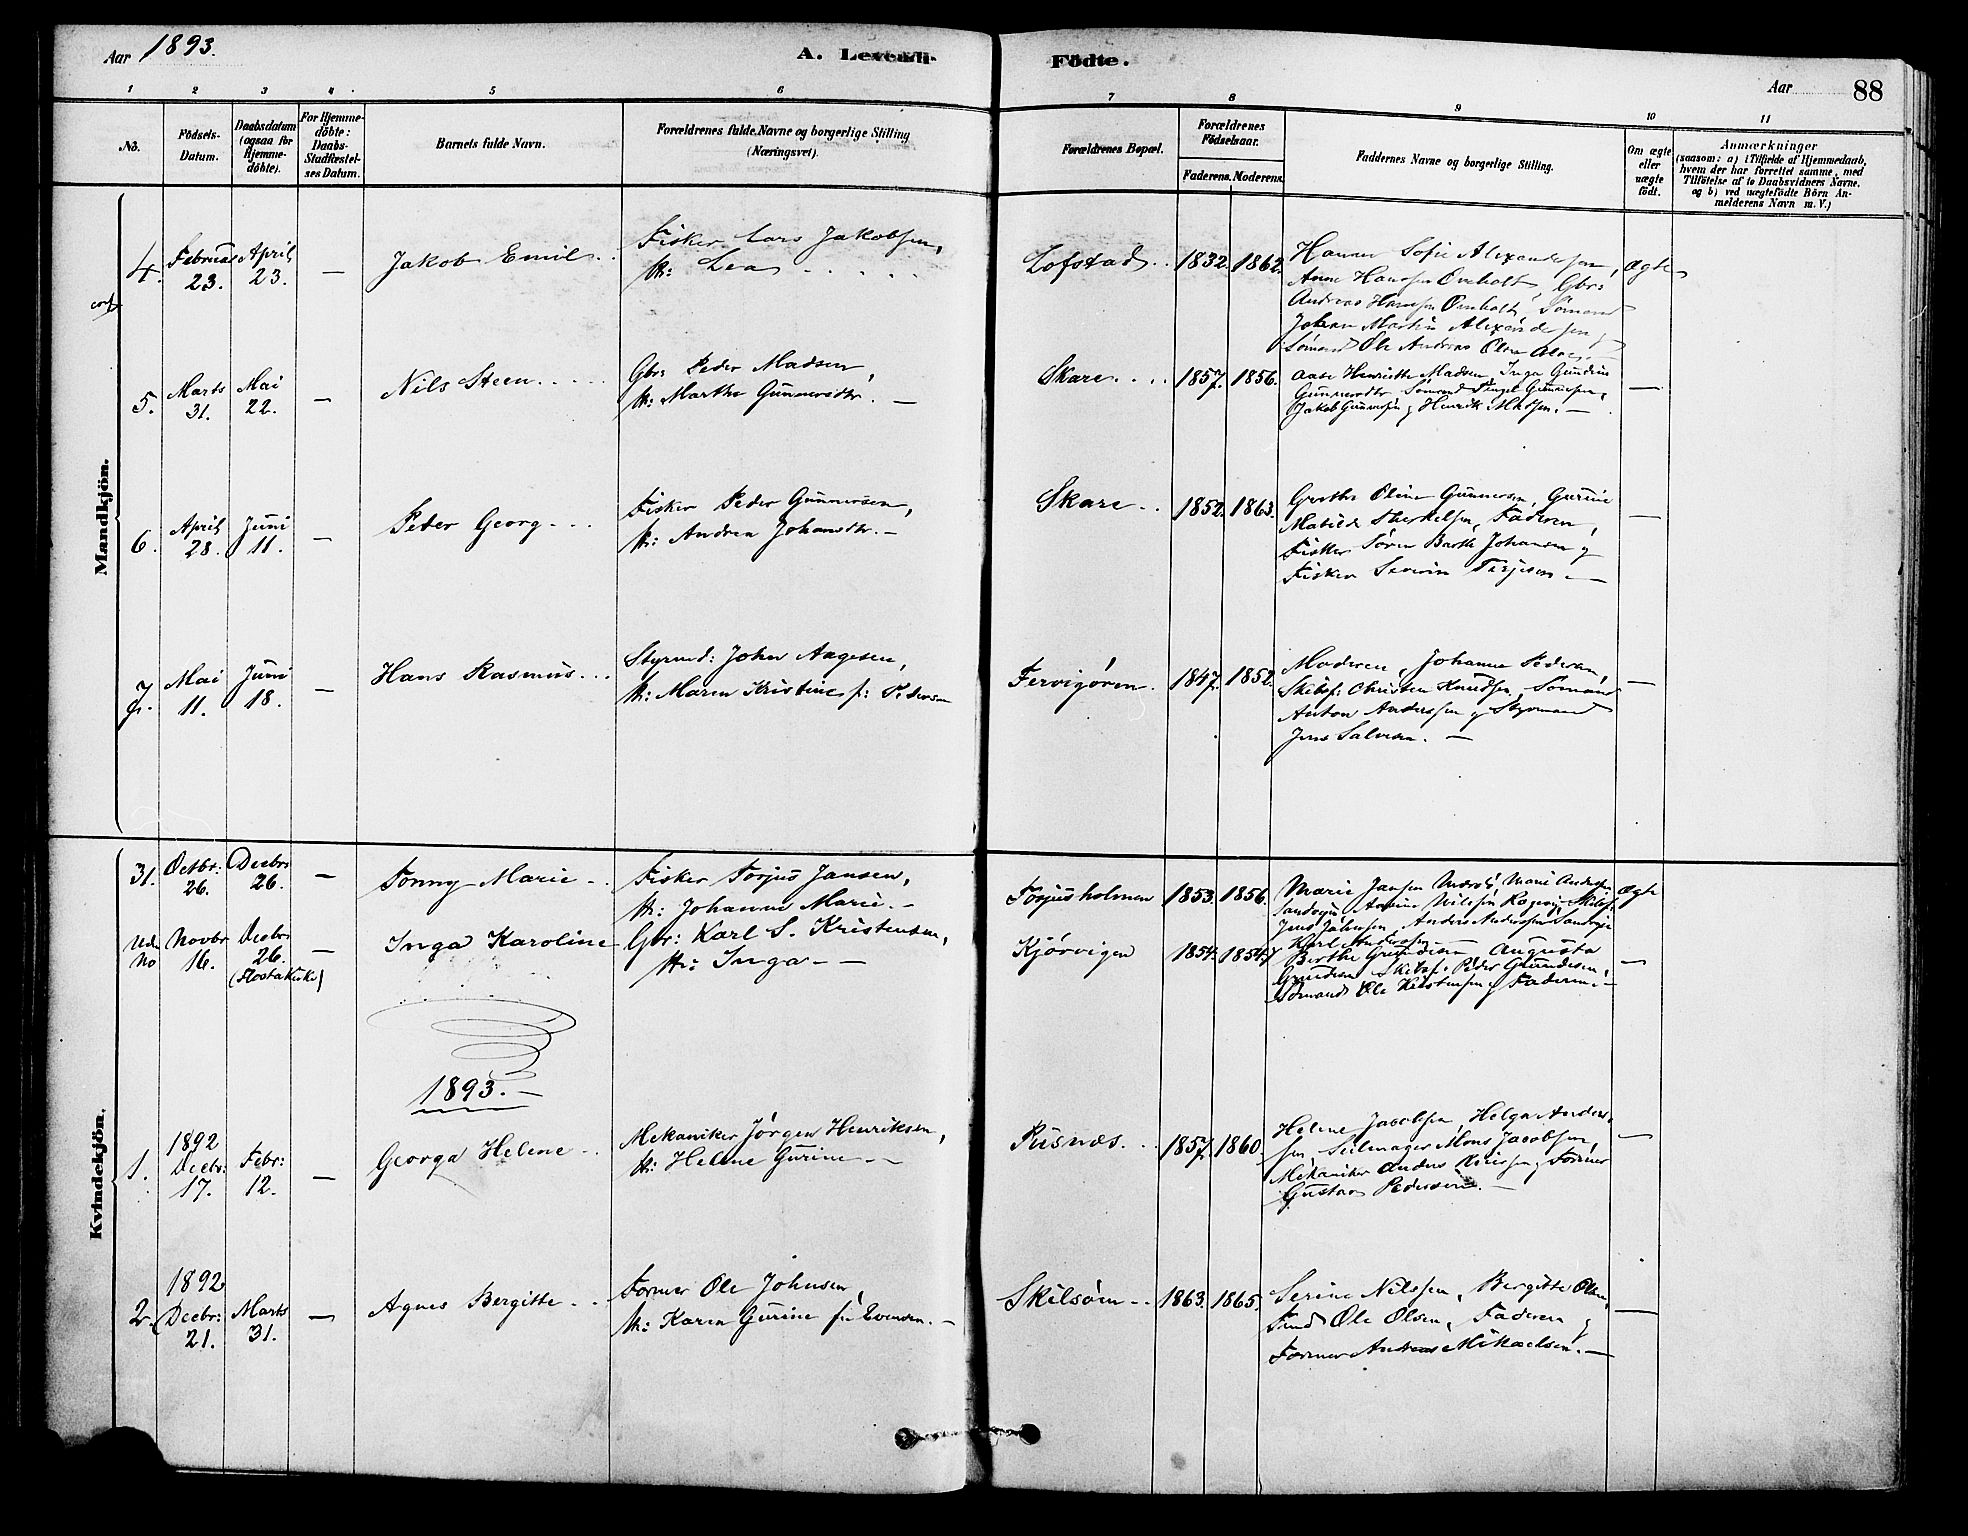 Aar 1893.
A. Levende
Födte.
Aar
88
1 2 3 4 5 6 7 8 9 10 11
No.
Födsels-
Datum.
Daabsdatum
(ogsaa for
Hjemme-
döbte).
For Hjemme-
döbte:
Daabs-
Stadfæstel-
ses Datum.
Barnets fulde Navn.
Forældrenes fulde Navne og borgerlige Stilling
(Næringsvei).
Forældrenes Bopæl.
Forældrenes
Födselsaar.
Faderens. Moderens.
Faddernes Navne og borgerlige Stilling.
Om ægte
eller
uægte
födt.
Anmærkninger
(saasom: a) i Tilfælde af Hjemmedaab,
hvem der har forrettet samme, med
Tilföielse af to Daabsvidners Navne,
og b) ved uægtefödte Börn An-
melderens Navn m. V.)
Mandkjön.
4. Februar 23. April 23. — Jakob Emil
Fisker Lars Jakobsen,
H: Lea
Lofstad 1832. 1862.
Hanne Sofie Alexandersen,
Anne Hansen Omholt, Gbr:
Andreas Hansen Omholt, Sömand
Johan Martin Alexandersen,
Sömand Ole Andreas Olsen
Ægte
5. Marts 31. Mai 22. — Nils Steen
Gbr: Peder Madsen,
H: Marthe Gunnersdtr. —
Skare 1857. 1856.
Aase Henriette Madsen, Inga Gundine
Gunnersdtr, Sömand Gunnersen,
Jakob Gunnersen & Henrik Madsen. —
—
6. April 28. Juni 11. — Peder Georg
Fisker Peder Gunnersen,
H: Andrea Johansdtr. —
Skare 1852. 1863.
Grethe Oline Gunnersen, Gurine
Matilde Therkelsen, Faderen,
Fisker Sören Barth Johansen &
Fisker Severin Terjesen —
—
7. Mai 11. Juni 18. — Hans Rasmus
Styrmd: John Aagesen,
H: Maren Kristine f: Pedersen
Fervigören 1847. 1852.
Moderen, Johanne Pedersen,
Skibsf: Christen Knudsen, Sömand
Anton Anderssen & Styrmand
Jens Salvesen. —
—
Kvindekjön.
31. Octbr: 26. Decbr: 26. — Tonny Marie
Fisker Torjus Jansen,
H: Johanne Marie. —
Torjusholmen 1853. 1856.
Marie Jansen Marie Andersen
Nilssen Skibsf:
Jens Johnsen, Anders Anderssen
Karl Anderssen
Ægte
Uden No Novbr 16. Decbr: 26. (Flosta Kirke) — Inga Karoline
Gbr: Karl S. Kristensen,
H: Inga — —
Kjörvigen 1854. 1854.
Berthe Gundersen Augusta
Gundersen Skibsf: Peder Gundersen,
Sömand Ole Kristensen & Faderen. —
—
1893. —
1. 1892 Decbr: 17. Febr: 12. — Georga Helene
Mekaniker Jörgen Henriksen,
H: Helene Gurine — —
Pusnæs. 1857. 1860.
Helene Jacobsen, Helga Anders-
sen, Seilmager Mons Jacobsen,
Mekaniker Anders & Former
Gustav Pedersen. —
—
2. 1892 Decbr: 21. Marts 31. — Agnes Bergitte
Former Ole Johnsen,
H: Karen Gurine f: Evensen. —
Skilsöen 1863. 1865.
Serine Nilssen, Bergitte Olsen,
Ole Olsen, Faderen &
Former Andreas Mikaelsen. —
—